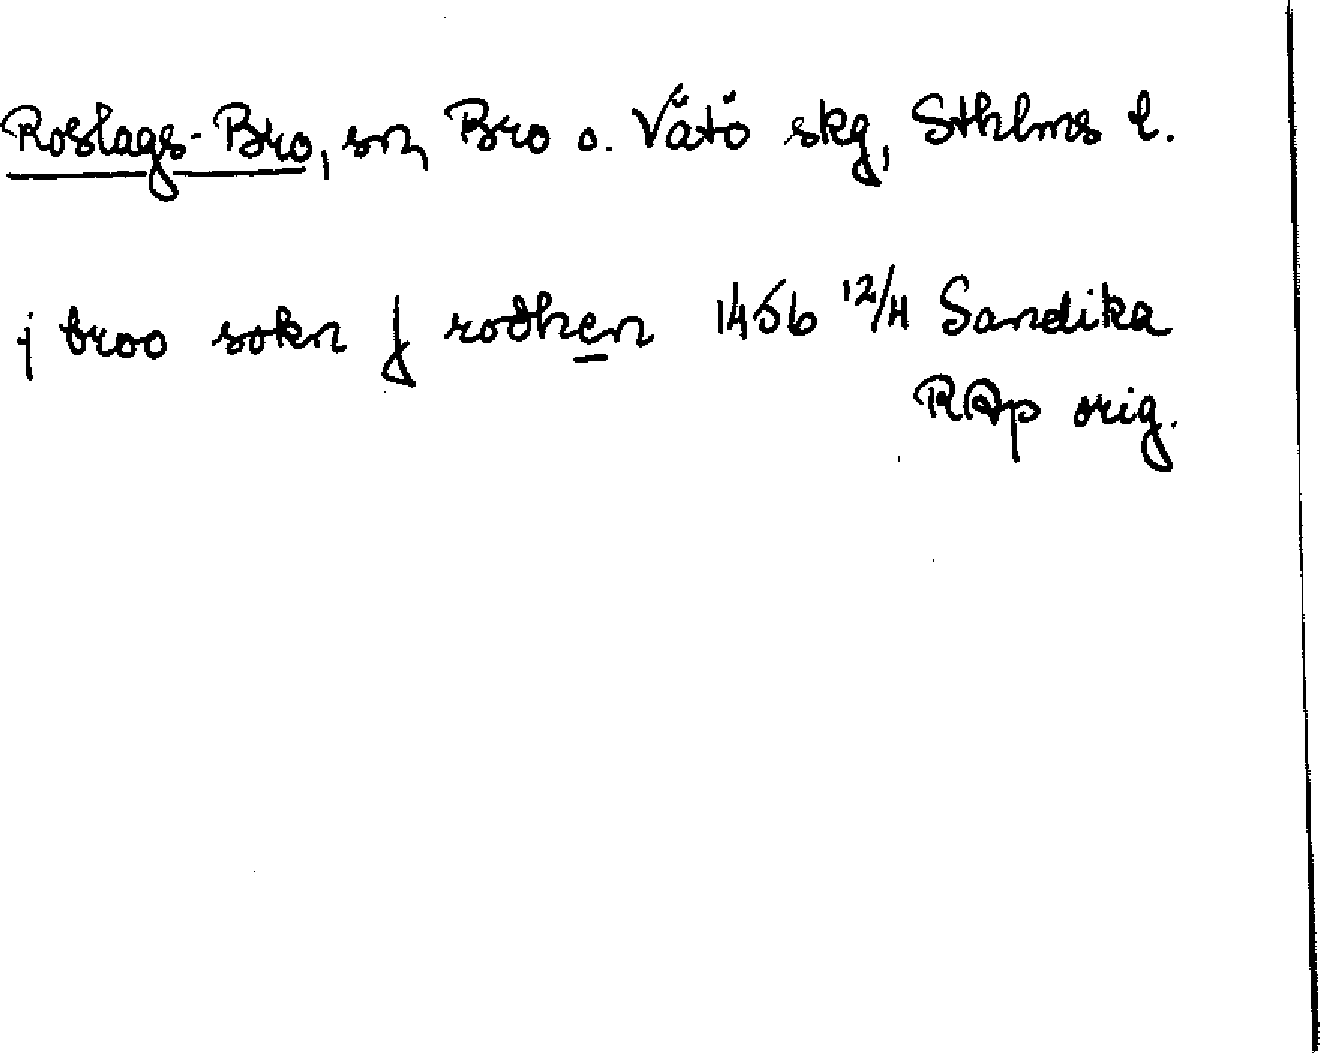 Roslags-Bro, sn, Bro o. Vätö skg, Sthlms l.
j broo sokn j rodhen 1456 12/4 Sandika
RAp orig.